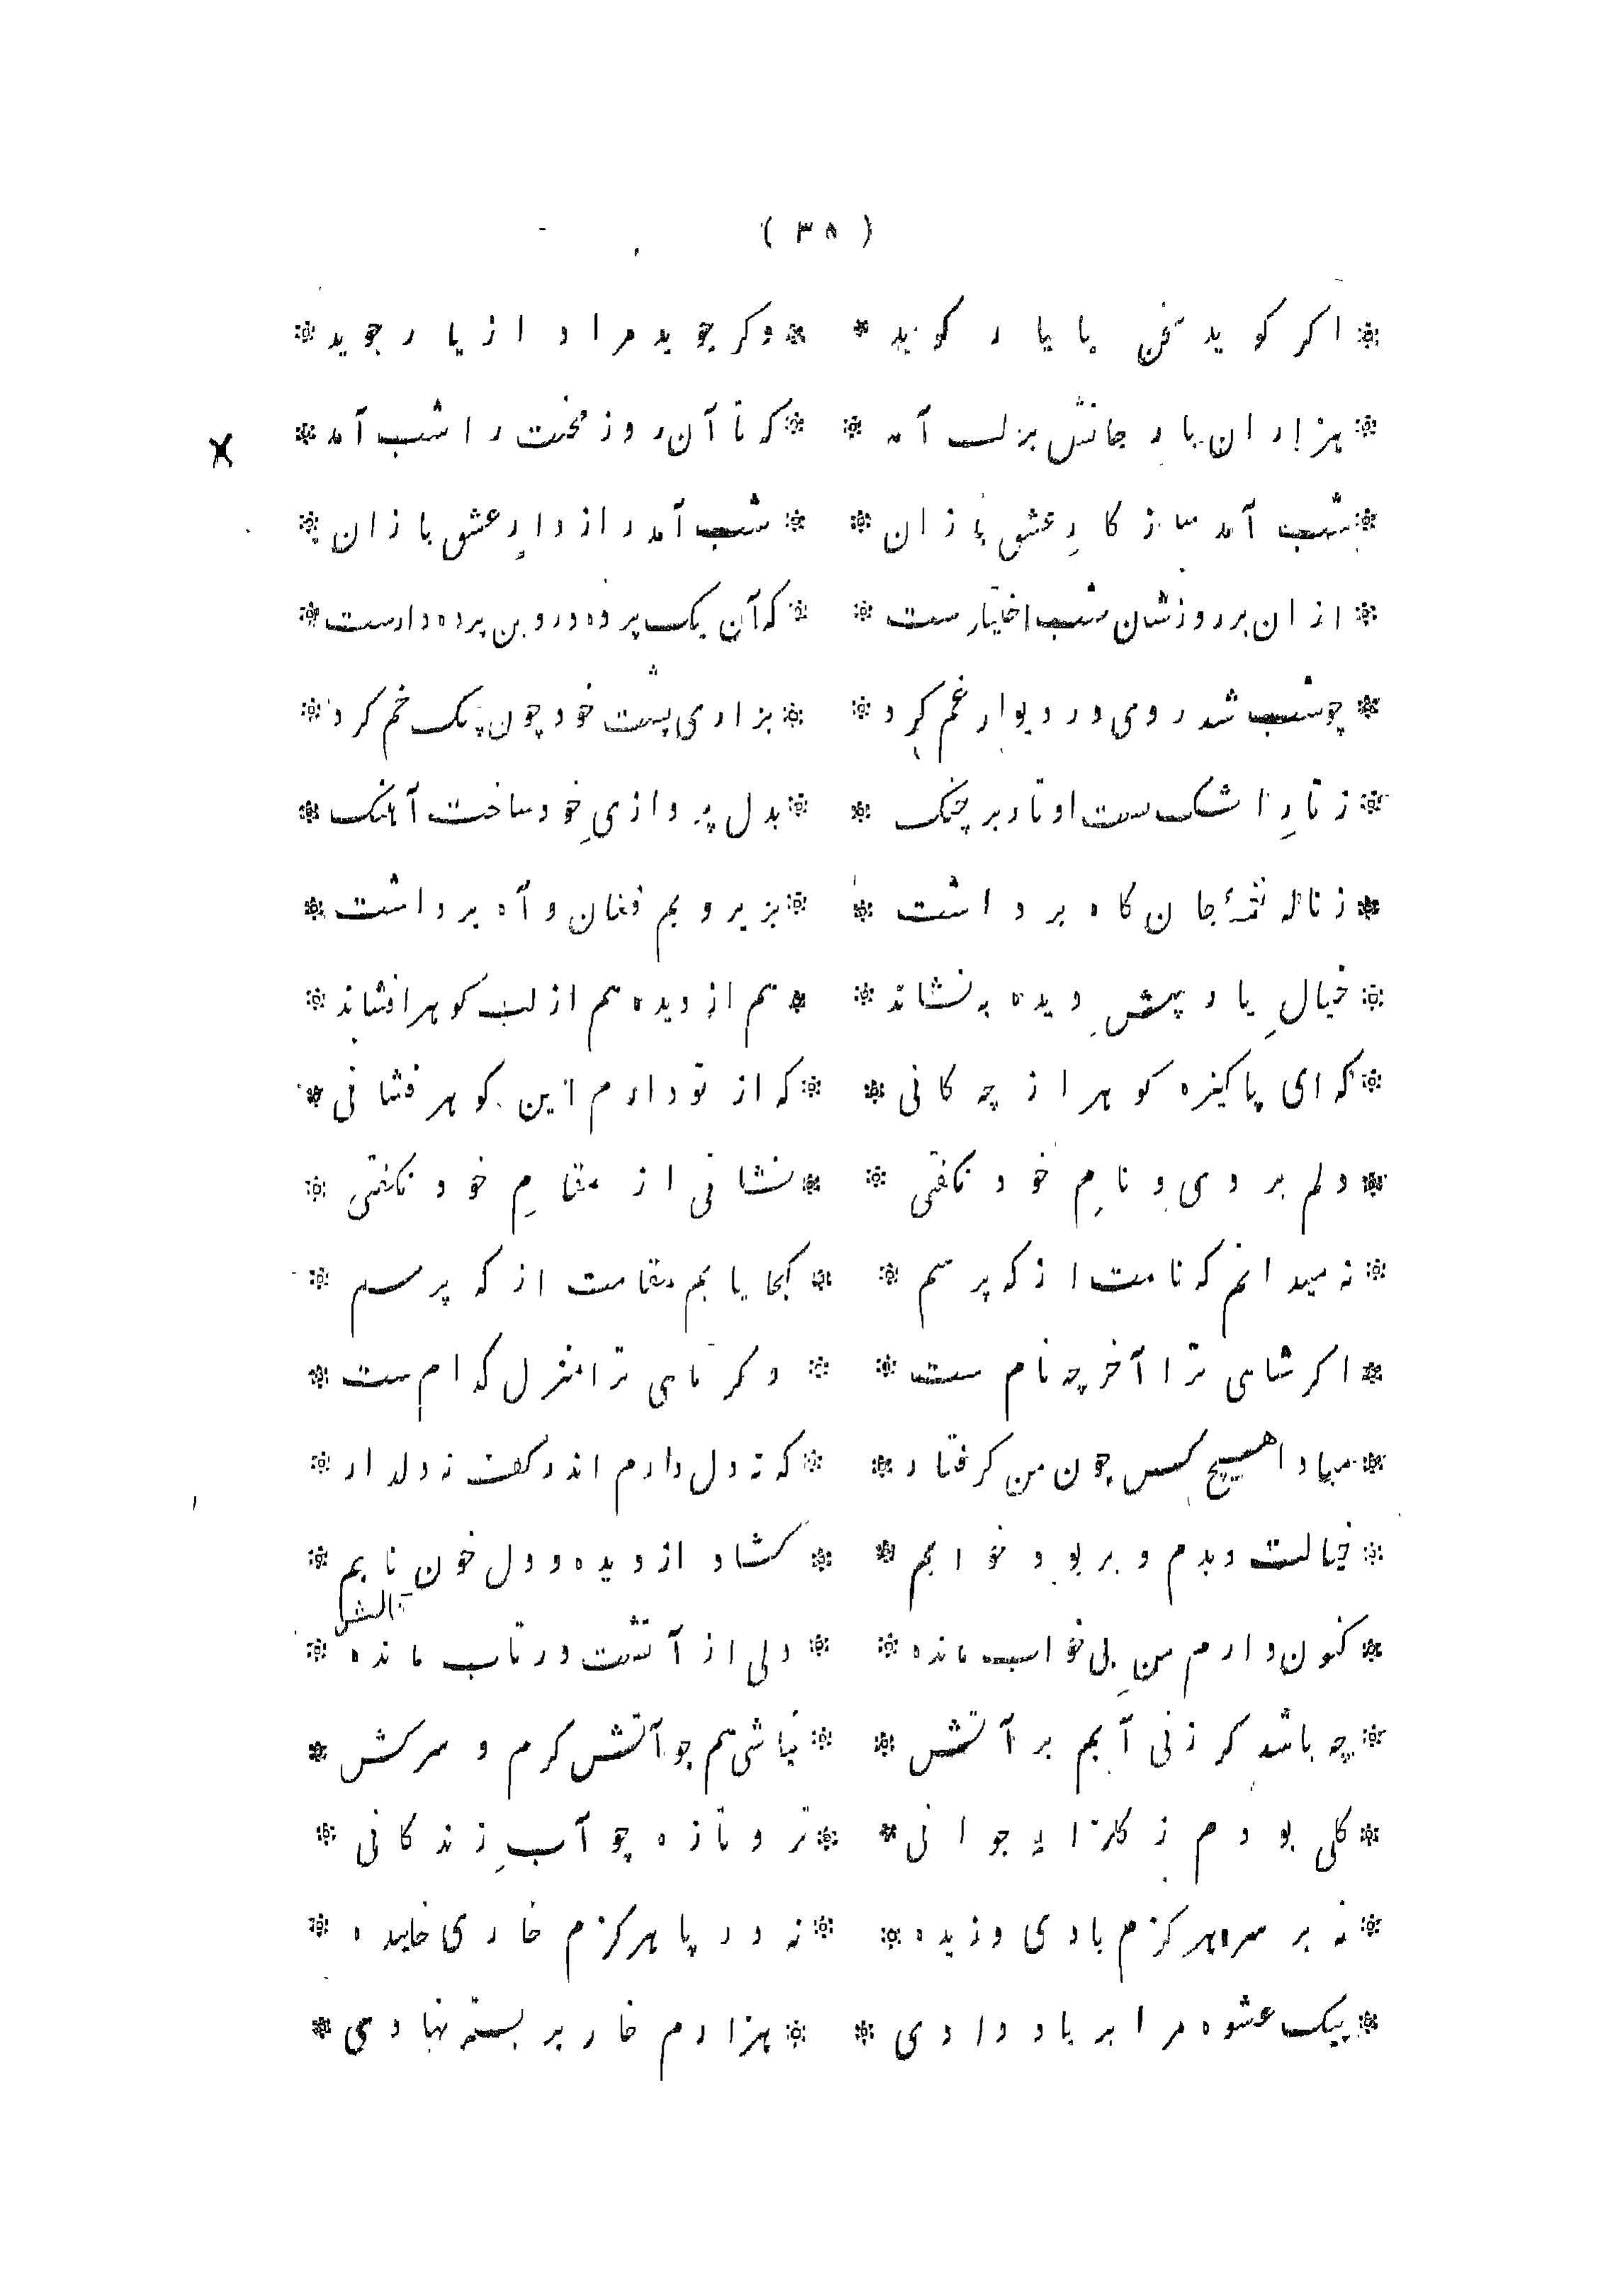 ( ۳۸ )
اکر کوید سخن با یار کوید * وکر جوید مراد از یار جوید
هزاران بار جانش بر لب آمد * که تا آن روز محنت را شب آمد
شب آمد ساز کارِ عشق بازان * شب آمد راز دارِ عشق بازان
ازان بر روزشان شب اختیارست * که آن یک پرده در وین پرده دارست
چو شب شد روی در دیوار غم کرد * بزاری پشت خود چون چنک خم کرد
ز تارِ اشک بست اوتار بر چنک * بدل پردازیِ خود ساخت آهنک
ز ناله نغمهٔ جان کاه برداشت * بزیر و بم فغان و آه برداشت
خیالِ یار پیشِ دیده به نشاند * هم از دیده هم از لب کوهر افشاند
که ای پاکیزه کوهر از چه کانی * که از تو دارم این کوهر فشانی
دلم بردی و نامِ خود نکفتی * نشانی از مقامِ خود نکفتی
نه میدانم که نامت از که پرسم * کجا یابم مقامت از که پرسم
اکر شاهی ترا آخر چه نام ست * وکر ماهی ترا منزل کدام ست
مبادا هیچ کس چون من کرفتار * که نه دل دارم اندر کف نه دلدار
خیالت دیدم و بربود خوابم * کشاد از دیده و دل خون نابم
کنون دارم منِ بی خواب مانده * دلی از آتشت در تاب مانده
چه باشد کر زنی آبم بر آتش * نباشی هم چو آتش کرم و سرکش
کلی بودم ز کلزارِ جوانی * تر و تازه چو آبِ زندکانی
نه بر سر هرکزم بادی وزیده * نه در پا هرکزم خاری خلیده
بیک عشوه مرا بر باد دادی * هزارم خار بر بستر نهادی